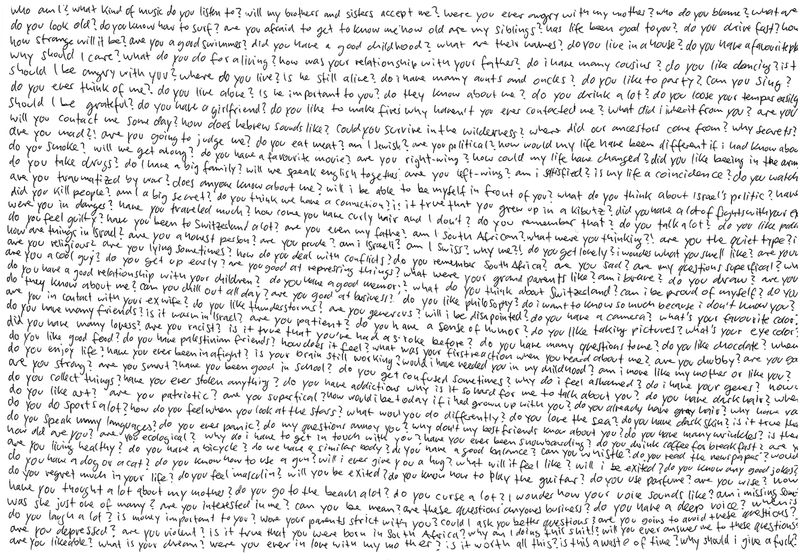 who am I? what kind of music do you listen to? will my brothers and sisters accept me? were you ever angry with my mother? who do you blame? what are
do you look old? do you know how to surf? are you afraid to get to know me? how old are my siblings? has life been good to you? do you drive fast? how
how strange will it be? are you a good swimmer? did you have a good childhood? what are their names? do you live in a house? do you have a favourite
why should I care? what do you do for a living? how was your relationship with your father? do i have many cousins? do you like dancing? is it
should I be angry with you? where do you live? is he still alive? do i have many aunts and uncles? do you like to party? Can you sing?
do you ever think of me? do you live alone? is he important to you? do they know about me? do you drink a lot? do you loose your temper easily
Should I be grateful? do you have a girlfriend? do you like to make fires why haven't you ever contacted me? what did i inherit from you? are you
will you contact me some day? how does hebrew sounds like? Could you survive in the wilderness? where did our ancestors come from? why secrets?
are you mad? are you going to judge me? do you eat meat? am I Jewish? are you political? how would my life have been different if i had know about
do you smoke? will we get along? do you have a favourite movie? are you right-wing? how could my life have changed? did you like beeing in the
do you take drugs? do I have a big family? will we speak english together? are you left-wing? am i satisfied? is my life a coincidence? do you watch
are you traumatized by war? does anyone know about me? will i be able to be myself in front of you? what do you think about Israel's politic? have
did you kill people? am I a big secret? do you think we have a connection? is it true that you grew up in a kibutz? did you have a lot of fights with your
were you in danger? have you traveled much? how come you have curly hair and I don't? do you remember that? do you talk a lot? do you like
do you feel guilty? have you been to Switzerland a lot? are you even my father? am I South African? what were you thinking? are you the quiet type?
how are things in Israel? are you a honest person? are you prude? am i Israeli? am I Swiss? why me?! do you get lonely? i wonder what you smell like? are your
are you religious? are you lying sometimes? how do you deal with conflicts? do you remember South Africa? are you sad? are my questions superfical?
are you a cool guy? do you get up early? are you good at repressing things? what were your grand parents like? am i brave? do you draw? are you
do you have a good relationship with your children? do you have a good memory? what do you think about Switzerland? can i be proud of myself? do you
do they know about me? can you chill out all day? are you good at business? do you like philosophy? do i want to know so much because i don't know you?
are you in contact with your ex wife? do you like thunderstorms? are you generous? will i be disapointed? do you have a camera? what's your favorite color?
do you have many friends? is it warm in Israel? are you patient? do you have a sense of humor? do you like taking pictures? what's your eye color?
did you have many lovers? are you racist? is it true that you've had a stroke before? do you have many questions to me? do you like chocolate? when
do you like good food? do you have palestinian friends? how does it feel? what was your first reaction when you heard about me? are you chubby? are you
do you enjoy life? have you ever been in a fight? is your brain still working? would i have needed you in my childhood? am i more like my mother or like you?
are you strong? are you smart? have you been good in school? do you get confused sometimes? why do i feel ashamed? do i have your genes?
do you collect things? have you ever stolen anything? do you have addictions? why is it so hard for me to talk about you? do you have dark hair?
do you like art? are you patriotic? are you superfical? how would i be today if i had grown up with you? do you already have grey hair? why have
do you do sports a lot? how do you feel when you look at the stars? what would you do differently? do you love the sea? do you have dark skin? is it true
do you speak many languages? do you ever panic? do my questions annoy you? why don't my best friends know about you? do you have many wrinkles? is
how old are you? are you ecological? why do i have to get in touch with you? have you ever been snowboarding? do you drink coffee for breakfast? are
are you living healthy? do you have a bicycle? do we have a similar body? do you have a good balance? can you whistle? do you read the newspaper? would
do you have a dog or a cat? do you know how to use a gun? will i ever give you a hug? what will it feel like? will i be exited? do you know any good jokes?
do you regret much in your life? do you feel masculin? will you be exited? do you know how to play the guitar? do you use parfume? are you wise?
have you thought a lot about my mother? do you go to the beach a lot? do you curse a lot? i wonder how your voice sounds like? am i missing
was she just one of many? are you interested in me? can you be mean? are these questions anyones business? do you have a deep voice?
do you laugh a lot? is money important to you? were your parents strict with you? could I ask you better questions? are you going to avoid these questions?
are you depressed? are you violent? is it true that you were born in South Africa? why am I doing this shit? will you ever answer me to these questions
are you likeable? what is your dream? were you ever in love with my mother? is it worth all this? is this a waste of time? why should i give a fuck?